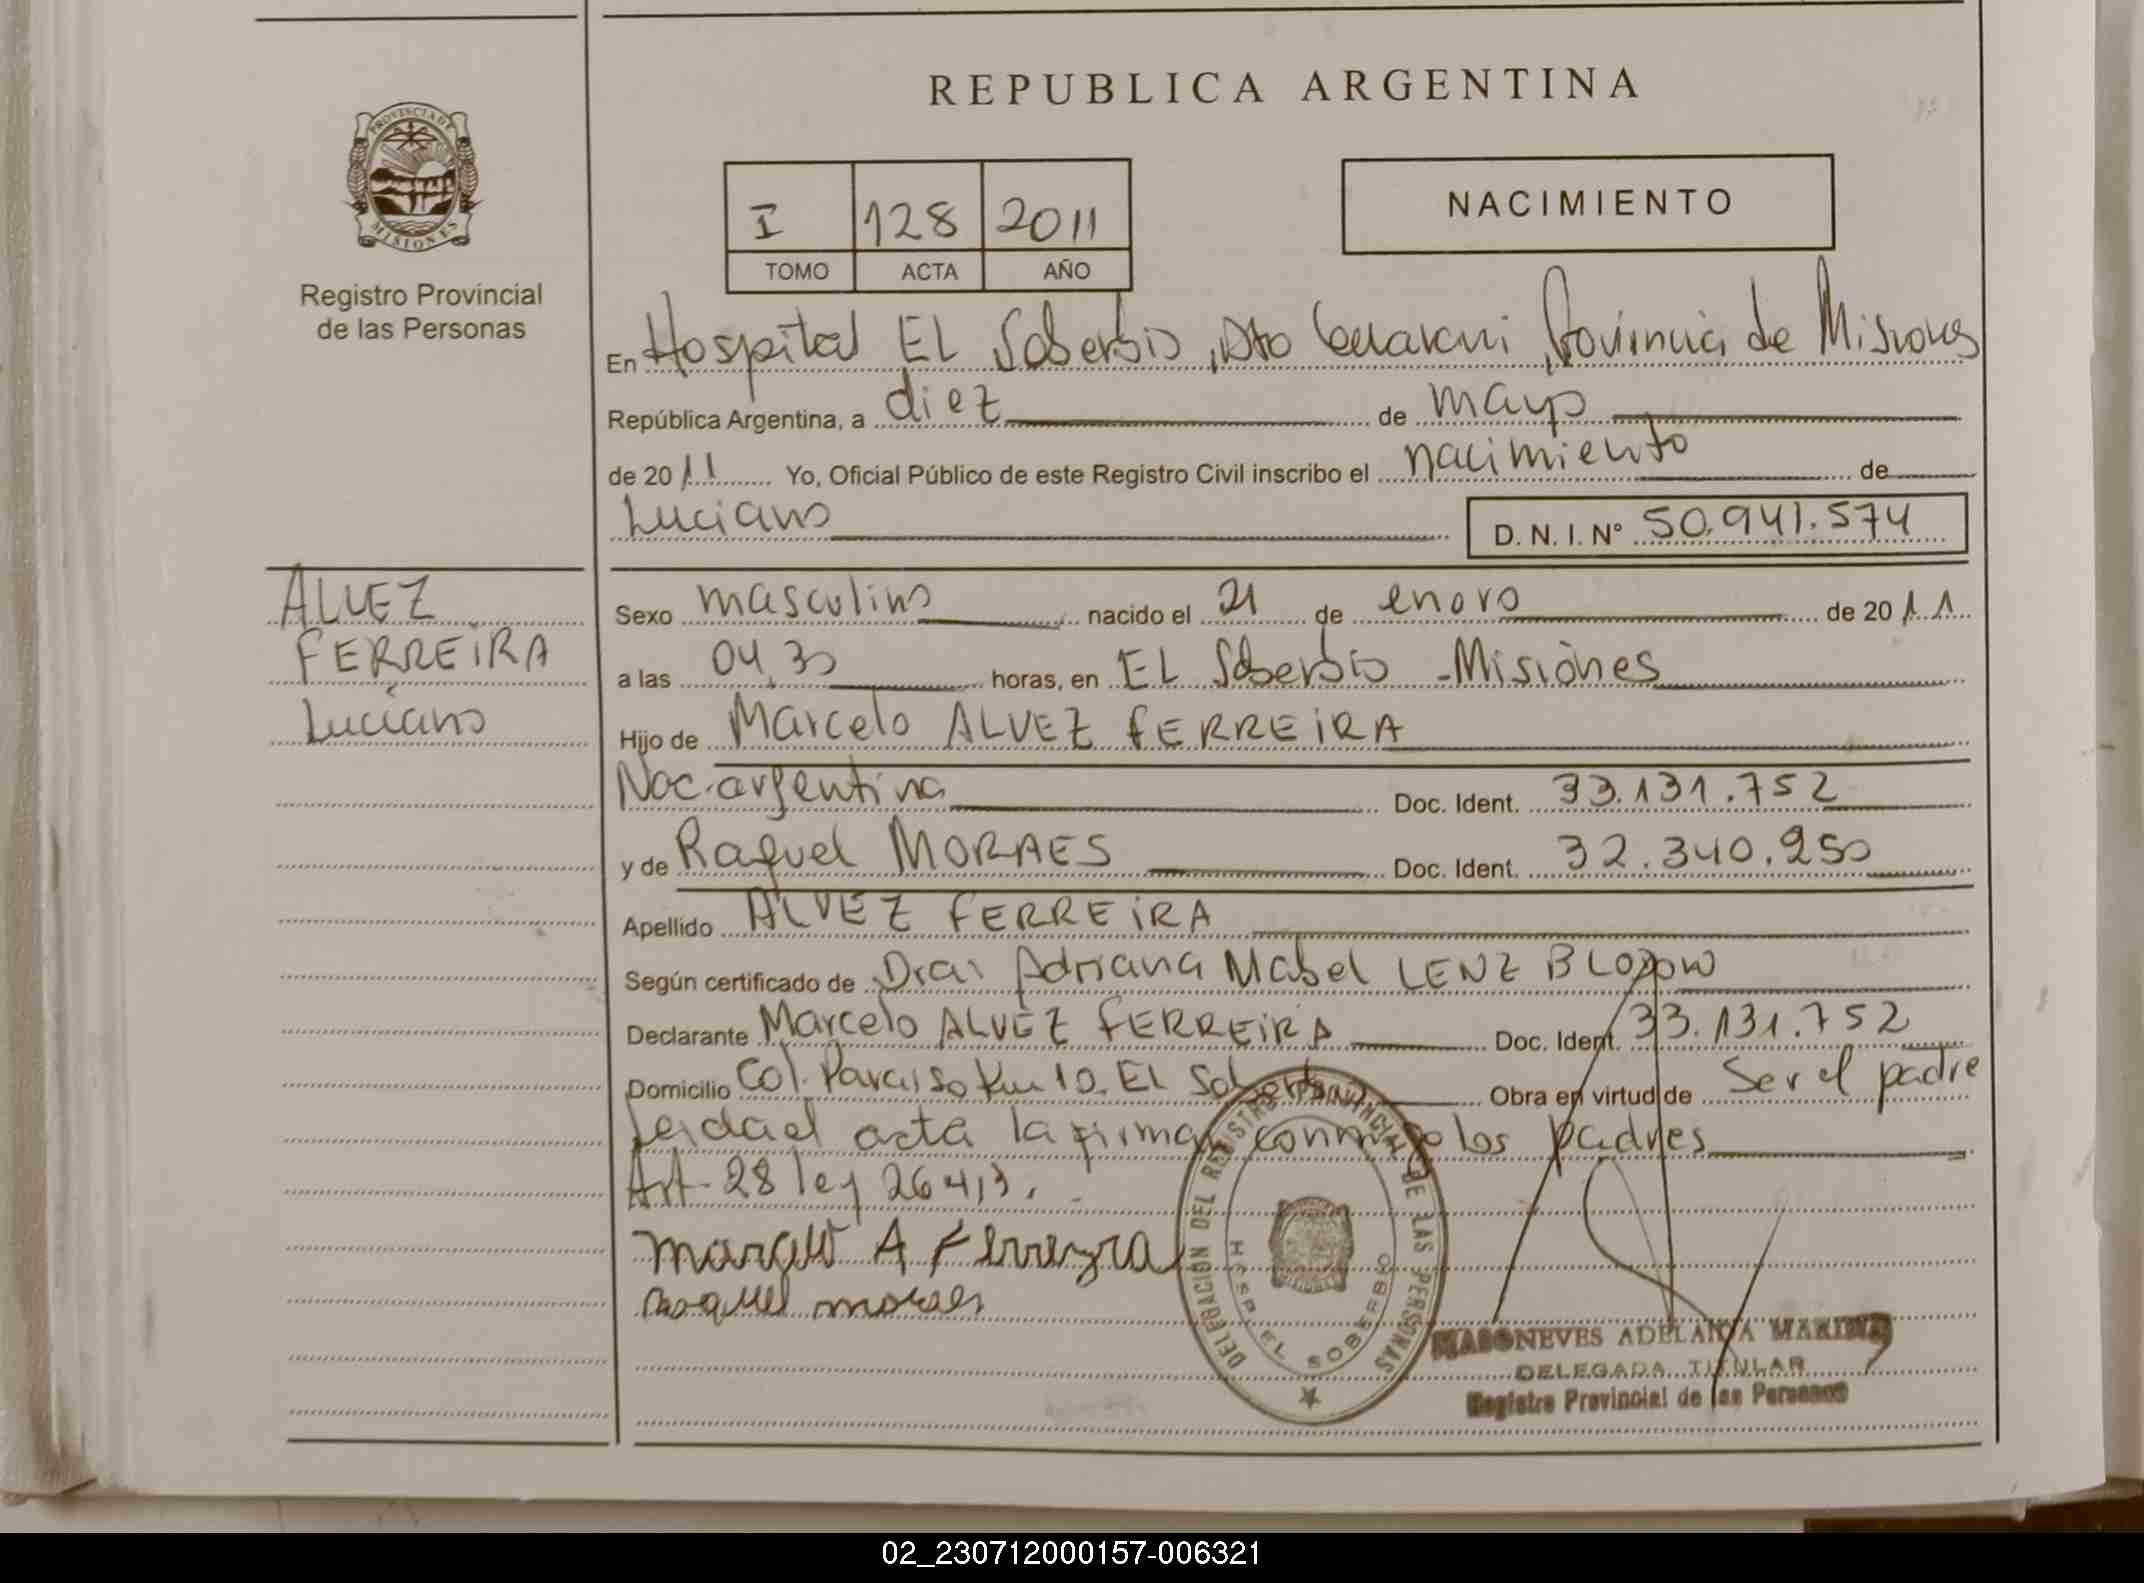 REPUBLICA ARGENTINA
PROVINCIA DE
MISIONES
Registro Provincial
de las Personas
I 128 2011
TOMO ACTA AÑO
NACIMIENTO
En Hospital EL Soberbio, Dto Guarani, Provincia de Misiones
República Argentina, a diez de mayo
de 2011 Yo, Oficial Público de este Registro Civil inscribo el nacimiento de
Luciano D. N. I. N° 50.941.574
ALVEZ
FERREIRA
Luciano
Sexo masculino nacido el 21 de enero de 2011
a las 04,30 horas, en EL Soberbio - Misiones
Hijo de Marcelo ALVEZ FERREIRA
Nac. argentina Doc. Ident. 33.131.752
y de Raquel MORAES Doc. Ident. 32.340.250
Apellido ALVEZ FERREIRA
Según certificado de Dra: Adriana Mabel LENZ
Declarante Marcelo ALVEZ FERREIRA Doc. Ident. 33.131.752
Domicilio Col. Paraiso Km 10. EL Soberbio Obra en virtud de Ser el padre
leida el acta la firman conmigo los padres
Art 28 ley 26413.
marcelo A Ferreyra
Raquel moraes
DELEGACION DEL REGISTRO PROVINCIAL DE LAS PERSONAS
HOSP. EL SOBERBIO
DELEGADA TITULAR
Registro Provincial de las Personas
02_230712000157-006321